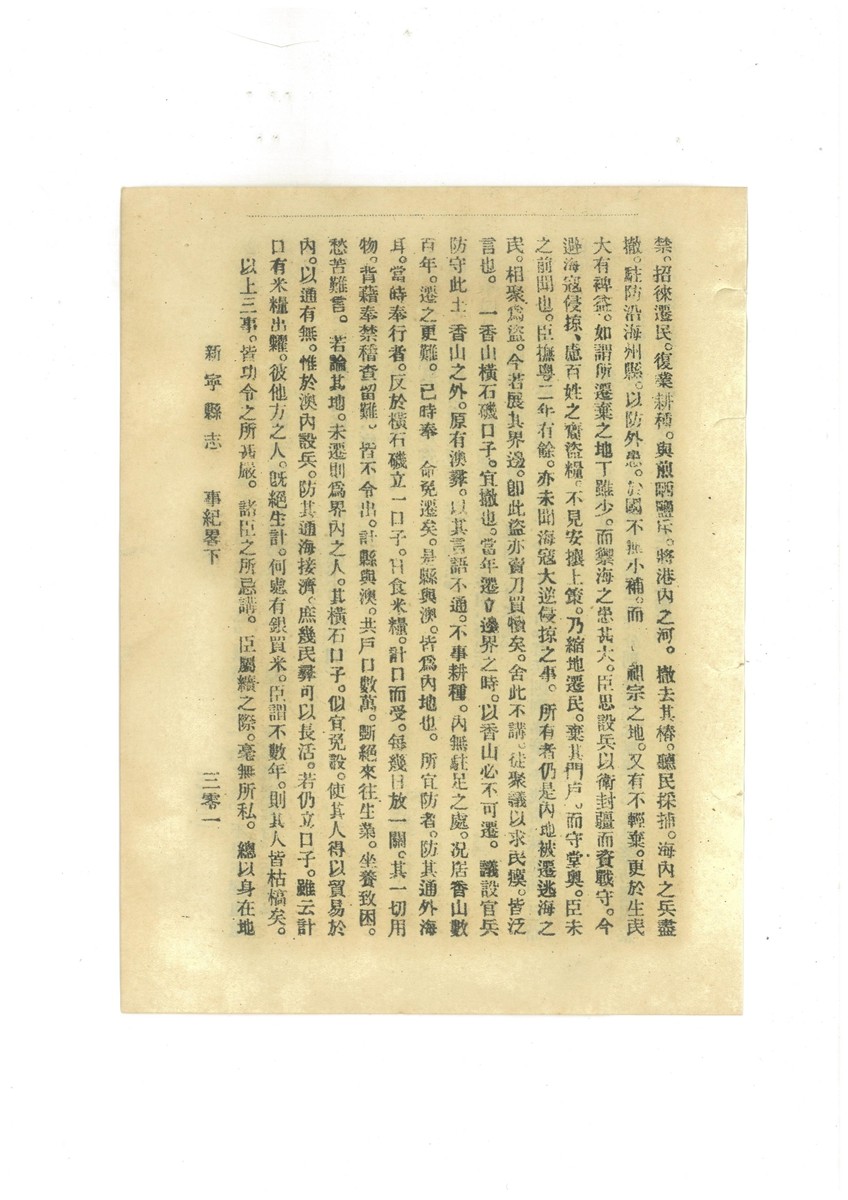 禁。招徠遷民。復業耕種。與煎晒鹽斥。將港內之河。撤去其樁。聽民採捕。海內之兵盡
撤。駐防沿海州縣。以防外患。於國不無小補。而祖宗之地。又有不輕棄。更於生民
大有裨益。如謂所遷棄之地丁雖少。而禦海之患甚大。臣思設兵以衛封疆而資戰守。今
避海寇侵掠、慮百姓之齎盜糧。不見安攘上策。乃縮地遷民。棄其門戶。而守堂奧。臣未
之前聞也。臣撫粵二年有餘。亦未聞海寇大逆侵掠之事。所有者仍是內地被遷逃海之
民。相聚爲盜。今若展其界邊。卽此盜亦賣刀買犢矣。舍此不講。徒聚議以求民瘼。皆泛
言也。一香山橫石磯口子。宜撤也。當年遷立邊界之時。以香山必不可遷。議設官兵
防守此土香山之外。原有澳彝。以其言語不通。不事耕種。內無駐足之處。况居香山數
百年。遷之更難。已時奉 命免遷矣。是縣與澳。皆爲內地也。所宜防者。防其通外海
耳。當時奉行者。反於橫石磯立一口子。日食米糧。計口而受。每幾日放一關。其一切用
物。背藉奉禁稽查留難。皆不令出。計縣與澳。共戶口數萬。斷絕來往生業。坐養致困。
愁苦難言。若論其地。未遷則爲界內之人。其橫石口子。似宜免設。使其人得以貿易於
內。以通有無。惟於澳內設兵。防其通海接濟。庶幾民彝可以長活。若仍立口子。雖云計
口有米糧出糶。彼他方之人。旣絕生計。何處有銀買米。臣謂不數年。則其人皆枯槁矣。
以上三事。皆功令之所甚嚴。諸臣之所忌講。臣屬纊之際。毫無所私。總以身在地
新寧縣志 事紀畧下 三零一